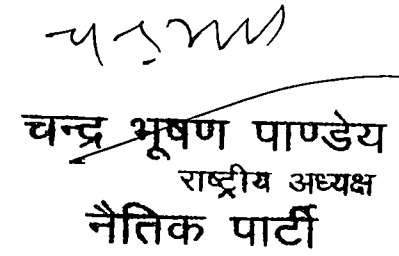 चन्द्र भूषण पाण्डेय
राष्ट्रीय अध्यक्ष
नैतिक पार्टी